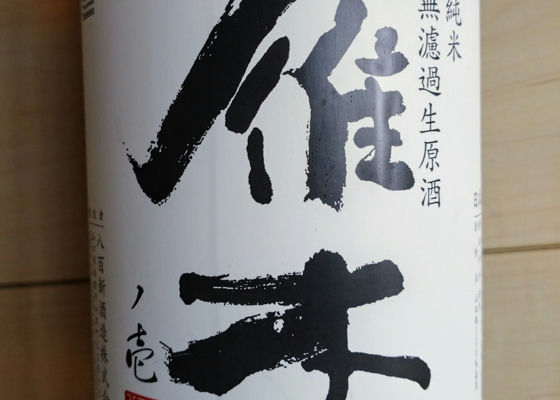 純米
無濾過生原酒
雁木
ノ壱
八百新酒造株式会